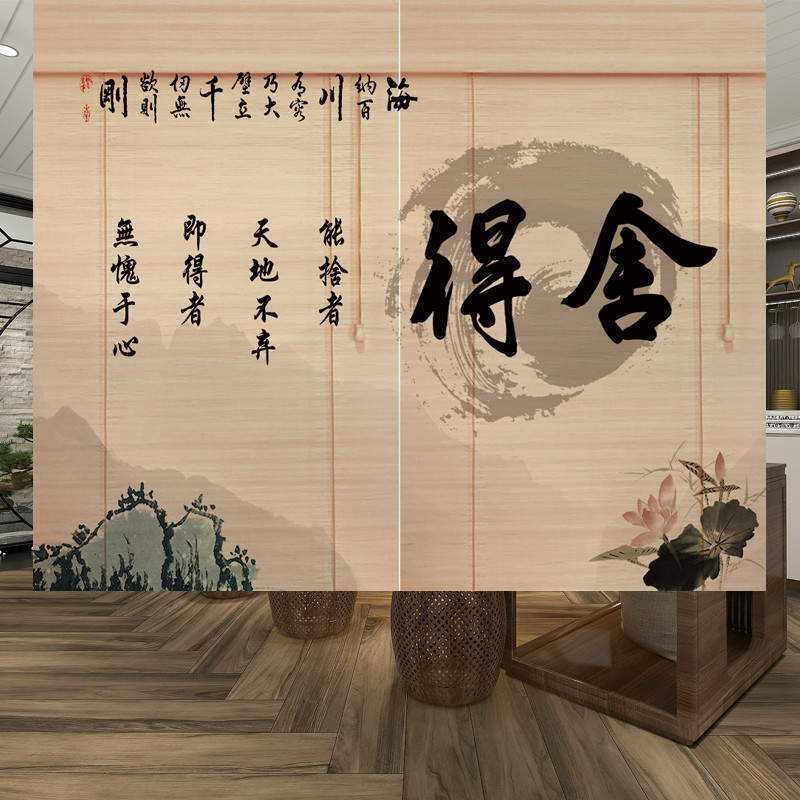 海納百川有容乃大壁立千仞無欲則剛
舍得
能捨者
天地不弃
即得者
無愧于心